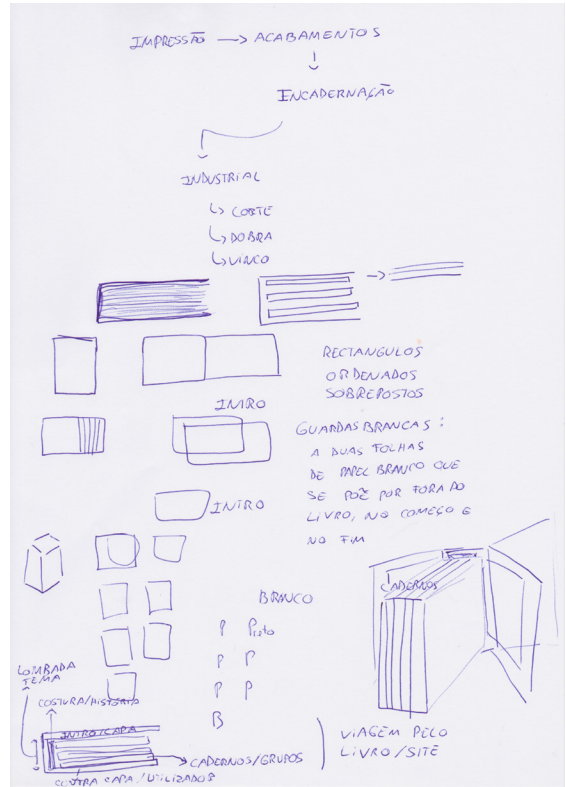 IMPRESSÃO → ACABAMENTOS
↓
ENCADERNAÇÃO
INDUSTRIAL
↳ CORTE
↳ DOBRA
↳ VINCO
RECTANGULOS
ORDENADOS
SOBREPOSTOS
INTRO
GUARDAS BRANCAS :
A DUAS FOLHAS
DE PAPEL BRANCO QUE
SE POẼ POR FORA DO
LIVRO, NO COMEÇO E
NO FIM
INTRO
CADERNOS
BRANCO
P Preto
P P
P P
B
LOMBADA
TEMA
COSTURA/HISTÓRIA
INTRO/CAPA
CADERNOS/GRUPOS
CONTRA CAPA/UTILIZADOR
VIAGEM PELO
LIVRO/SITE